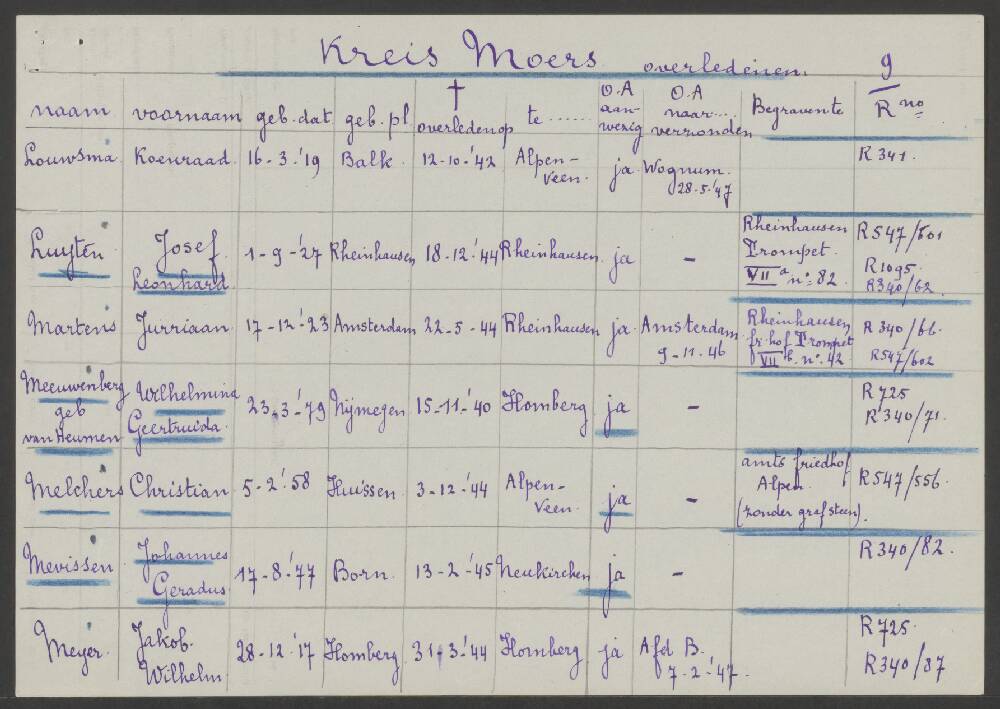 Kreis Moers overledenen. 9
naam voornaam geb.dat geb.pl † overleden op te ...... O.A aan- wezig O.A naar... verzonden Begraven te R no
Louwsma Koenraad 16-3-'19 Balk 12-10-'42 Alpen- Veen. ja Wognum. 28-5-'47 R 341.
Luyten Josef Leonhard 1-9-'27 Rheinhausen 18-12-'44 Rheinhausen ja - Rheinhausen Trompet. VII a no: 82. R547/601 R1095. R340/62.
Martens Jurriaan 17-12-'23 Amsterdam 22-5-44 Rheinhausen ja Amsterdam 9-11-46 Rheinhausen fr.hof Trompet VII b. no. 42 R 340/66. R547/602
Meeuwenberg geb van Heumen Wilhelmina Geertruida. 23-3-'79 Nijmegen 15-11-'40 Homberg ja - R725 R340/71.
Melchers Christian 5-2-'58 Huissen 3-12-'44 Alpen- Veen. ja - amts friedhof Alpen. (zonder grafsteen). R547/556.
Mevissen Johannes Geradus 17-8-'77 Born. 13-2-'45 Neukirchen ja - R340/82.
Meyer. Jakob. Wilhelm. 28-12-'17 Homberg 31-3-'44 Homberg ja Afd B. 7-2-'47. R725. R340/87